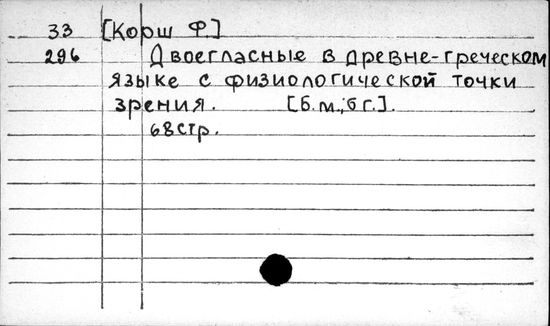 33 [Корш Ф.]
296 Двоегласные в древне-греческом
языке с физиологической точки
зрения. [б.м., б г.].
68 стр.